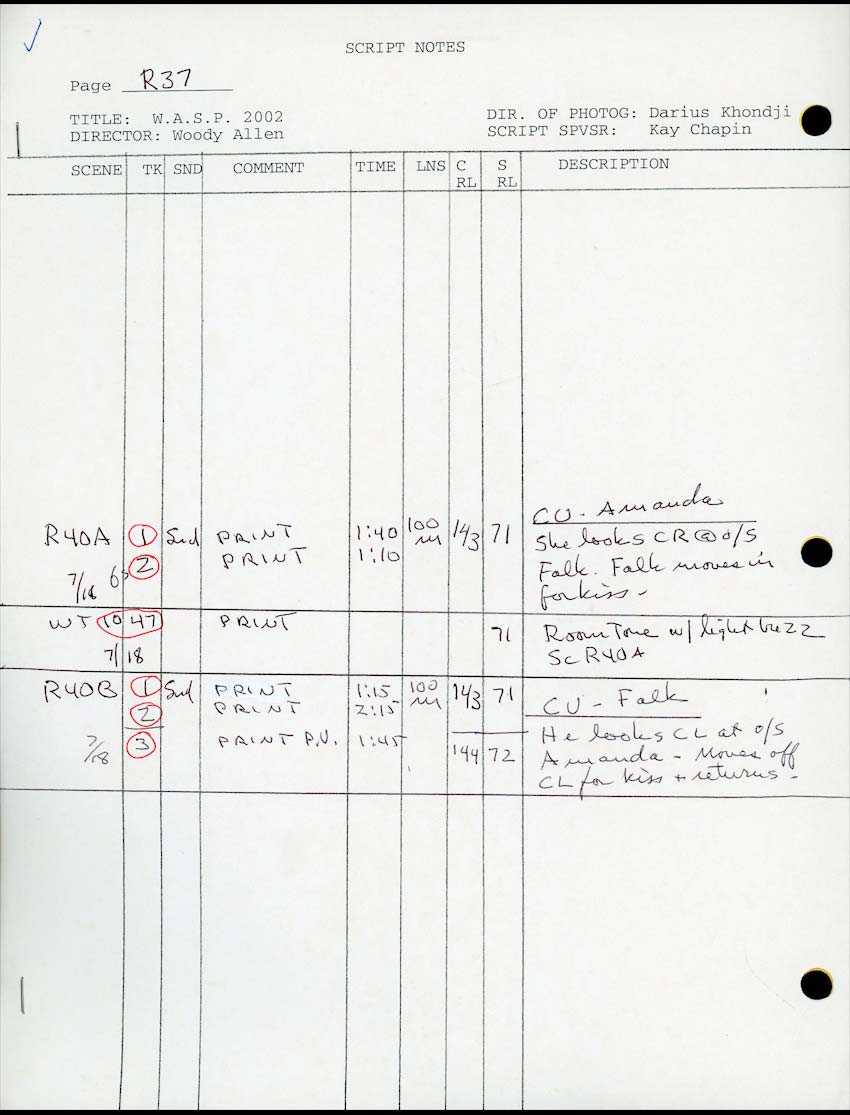 SCRIPT NOTES
Page R37
TITLE: W.A.S.P. 2002
DIRECTOR: Woody Allen
DIR. OF PHOTOG: Darius Khondji
SCRIPT SPVSR: Kay Chapin
SCENE TK SND COMMENT TIME LNS C RL S RL DESCRIPTION
CU - Amanda
R40A 1 Snd PRINT 1:40 100 m 143 71 She looks CR @ o/s
2 PRINT 1:10 Falk. Falk moves in
7/18 for kiss -
WT 1047 PRINT 71 Room Tone w/ light buzz
7/18 Sc R40A
R40B 1 Snd PRINT 1:15 100 m 143 71 CU - Falk
2 PRINT 2:15
He looks CL at o/s
7/18 3 PRINT P.U. 1:45 144 72 Amanda - Moves off
CL for kiss + returns -